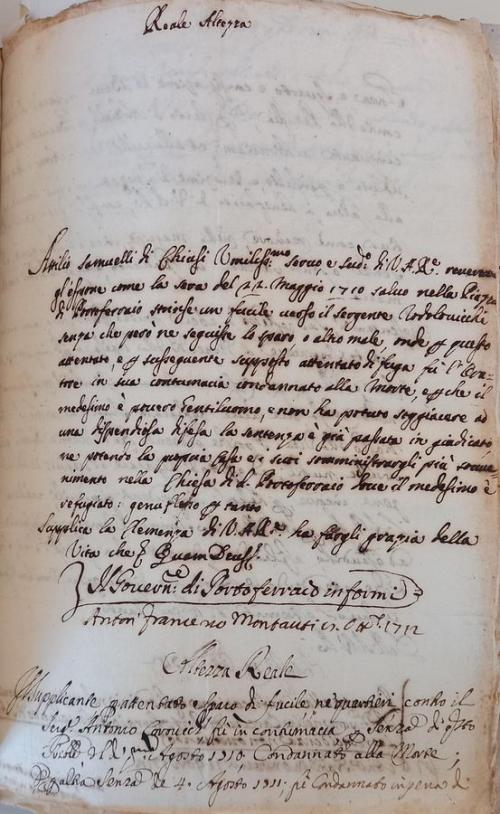 Reale Altezza
Attilio Samuelli di Chiusi Umiliss.mo servo, e Sud.o di V. A. R.e reverem
gl'espone come la sera del 22 Maggio 1710 salvo nella Piazza
di Portoferraio strinse un fucile verso il sergente
senza che però ne seguisse lo sparo, o altro male, onde p questo
attentato, e p susseguente supposto attentato di fuga fù l'Ora-
tore in sua contumacia condannato alla Morte, e p che il
medesimo è povero Gentiluomo, e non ha potuto soggiacere ad
una dispendiosa difesa la sentenza è già passata in giudicato
ne potendo la propria Casa e i suoi somministrargli più sovve-
nimento nella Chiesa di d. Portoferraio dove il medesimo è
refugiato: genuflesso p tanto
Supplica la Clemenza di V. A. R.e ha fargli grazia della
Vita che p Quam Deus
Il Govern.re di Portoferraio informi
Anton Francesco Montauti 1712
Altezza Reale
Il Supplicante p attentato sparo di fucile ne quartieri contro il
Serg.te Antonio fù in contumacia Senza di
Agosto 1710 Condannato alla Morte;
altra Senza de 4 Agosto 1711: fù Condannato in pena di